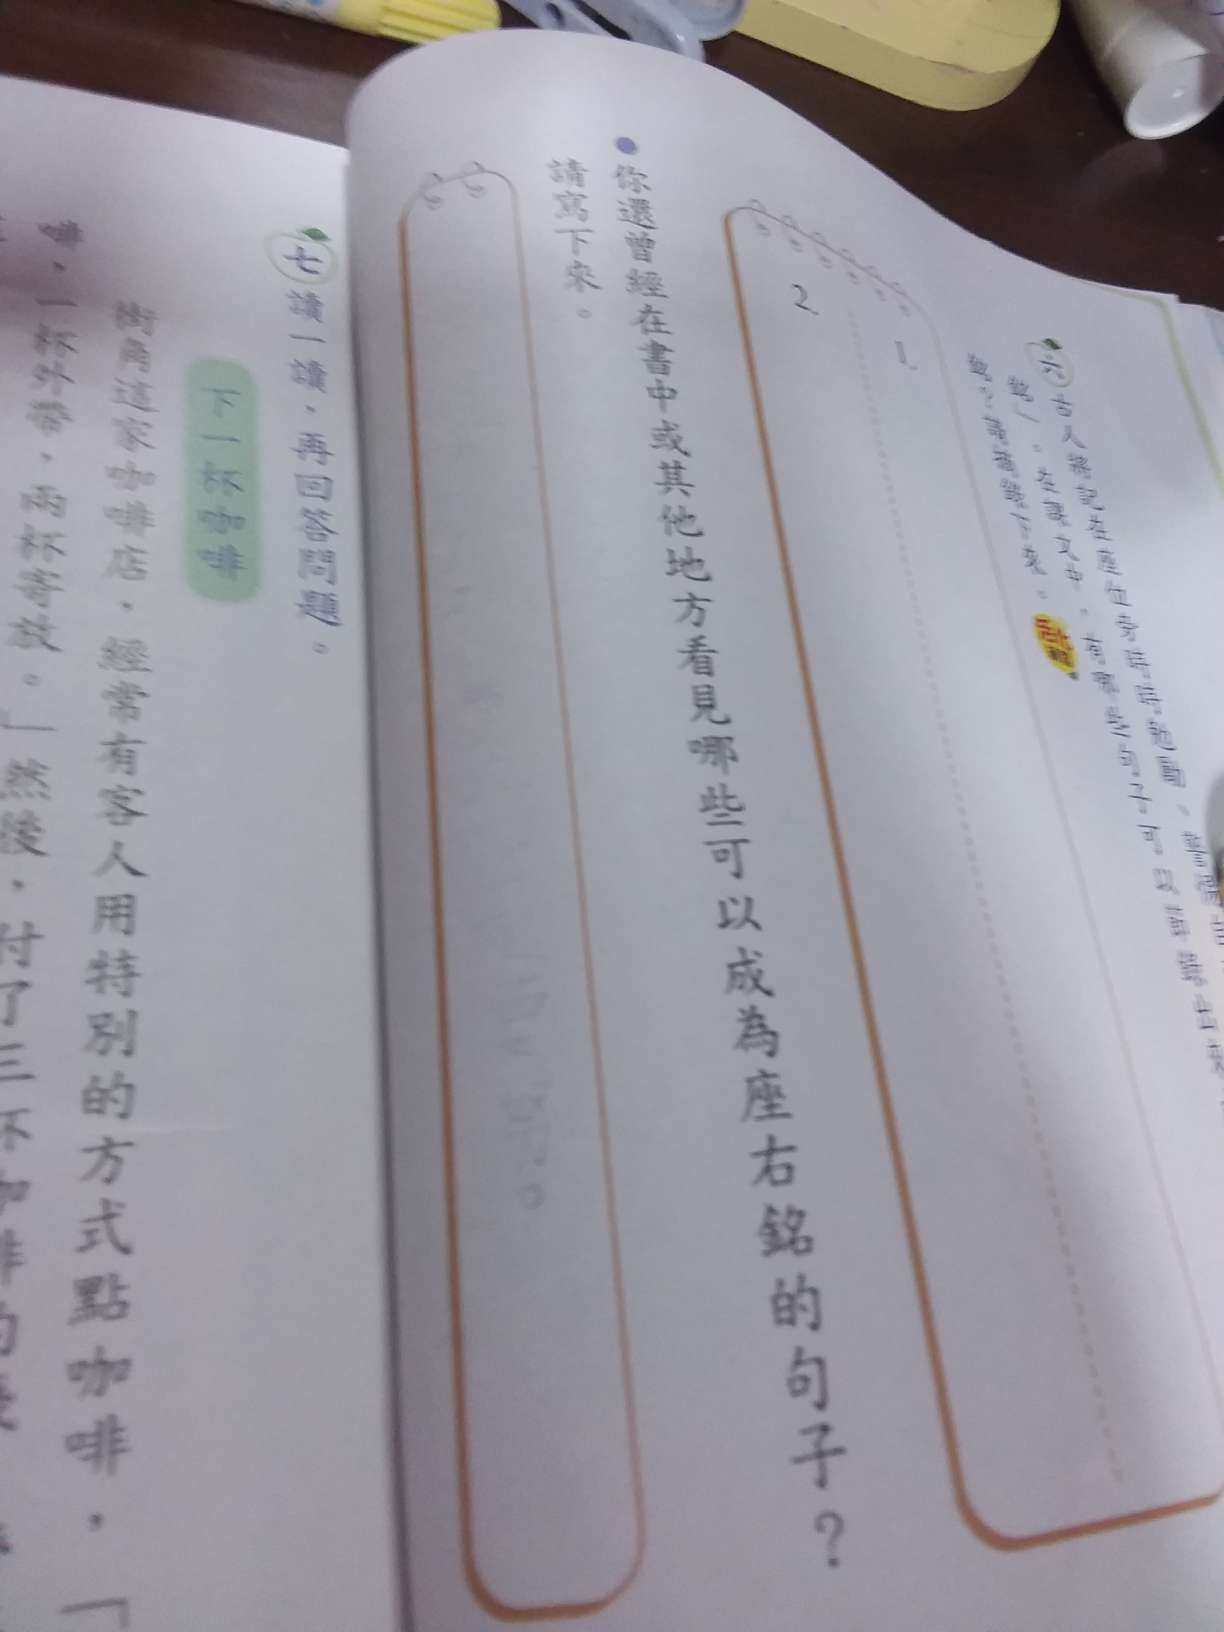 六 古人將記在座位旁時時勉勵、警惕
銘」。在課文中，有哪些句子可以節錄出來
銘？請摘錄下來。
1.
2.
●你還曾經在書中或其他地方看見哪些可以成為座右銘的句子？
請寫下來。
七 讀一讀，再回答問題。
下一杯咖啡
街角這家咖啡店，經常有客人用特別的方式點咖啡，「
啡，一杯外帶，兩杯寄放。」然後，付了三杯咖啡的